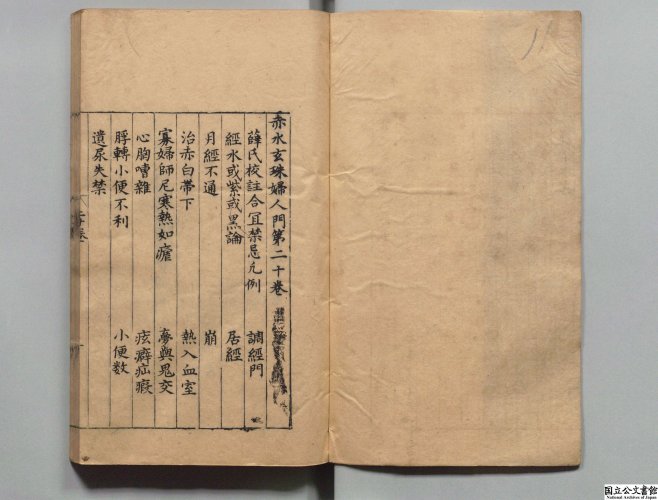 赤水玄珠婦人門第二十卷
薛氏校註合宜禁忌凡例　調經門
經水或紫或黒論　居經
月經不通　崩
治赤白帶下　熱入血室
寡婦師尼寒熱如瘧　夢與鬼交
心胸嘈雜　痃癖疝瘕
脬轉小便不利　小便数
遺尿失禁
国立公文書館
National Archives of Japan